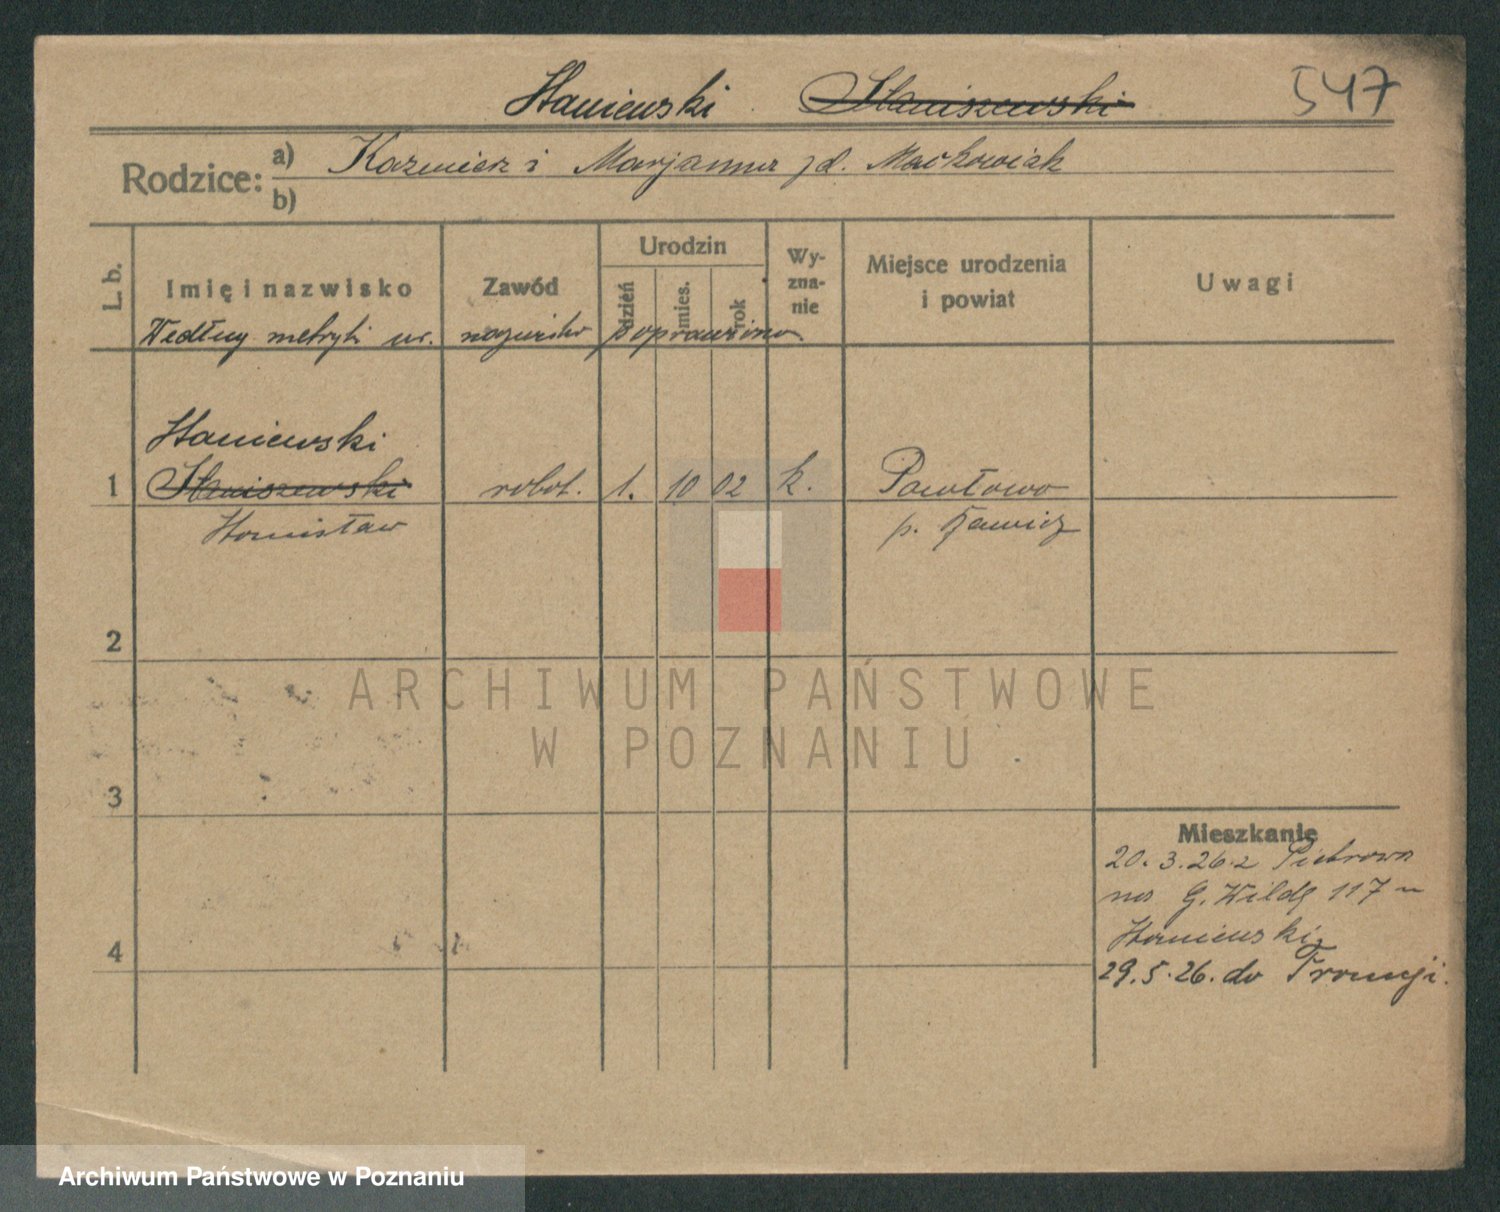 Staniewski Staniszewski 547
Rodzice: a) Kazmierz i Marjanna zd. Maćkowiak
b)
L. b. Imię i nazwisko Zawód Urodzin dzień mies. rok Wyznanie Miejsce urodzenia i powiat Uwagi
Według metryki ur. nazwisko poprawiono
Staniewski
1 Staniszewski robot. 1. 10 02 k. Pawłowo
Stanisław p. Rawicz
2
3
Mieszkanie
20.3.26. z Piotrowa
na G. Wildę 117 u
Staniewski
4
29.5.26. do Francji.
ARCHIWUM PAŃSTWOWE
W POZNANIU
Archiwum Państwowe w Poznaniu